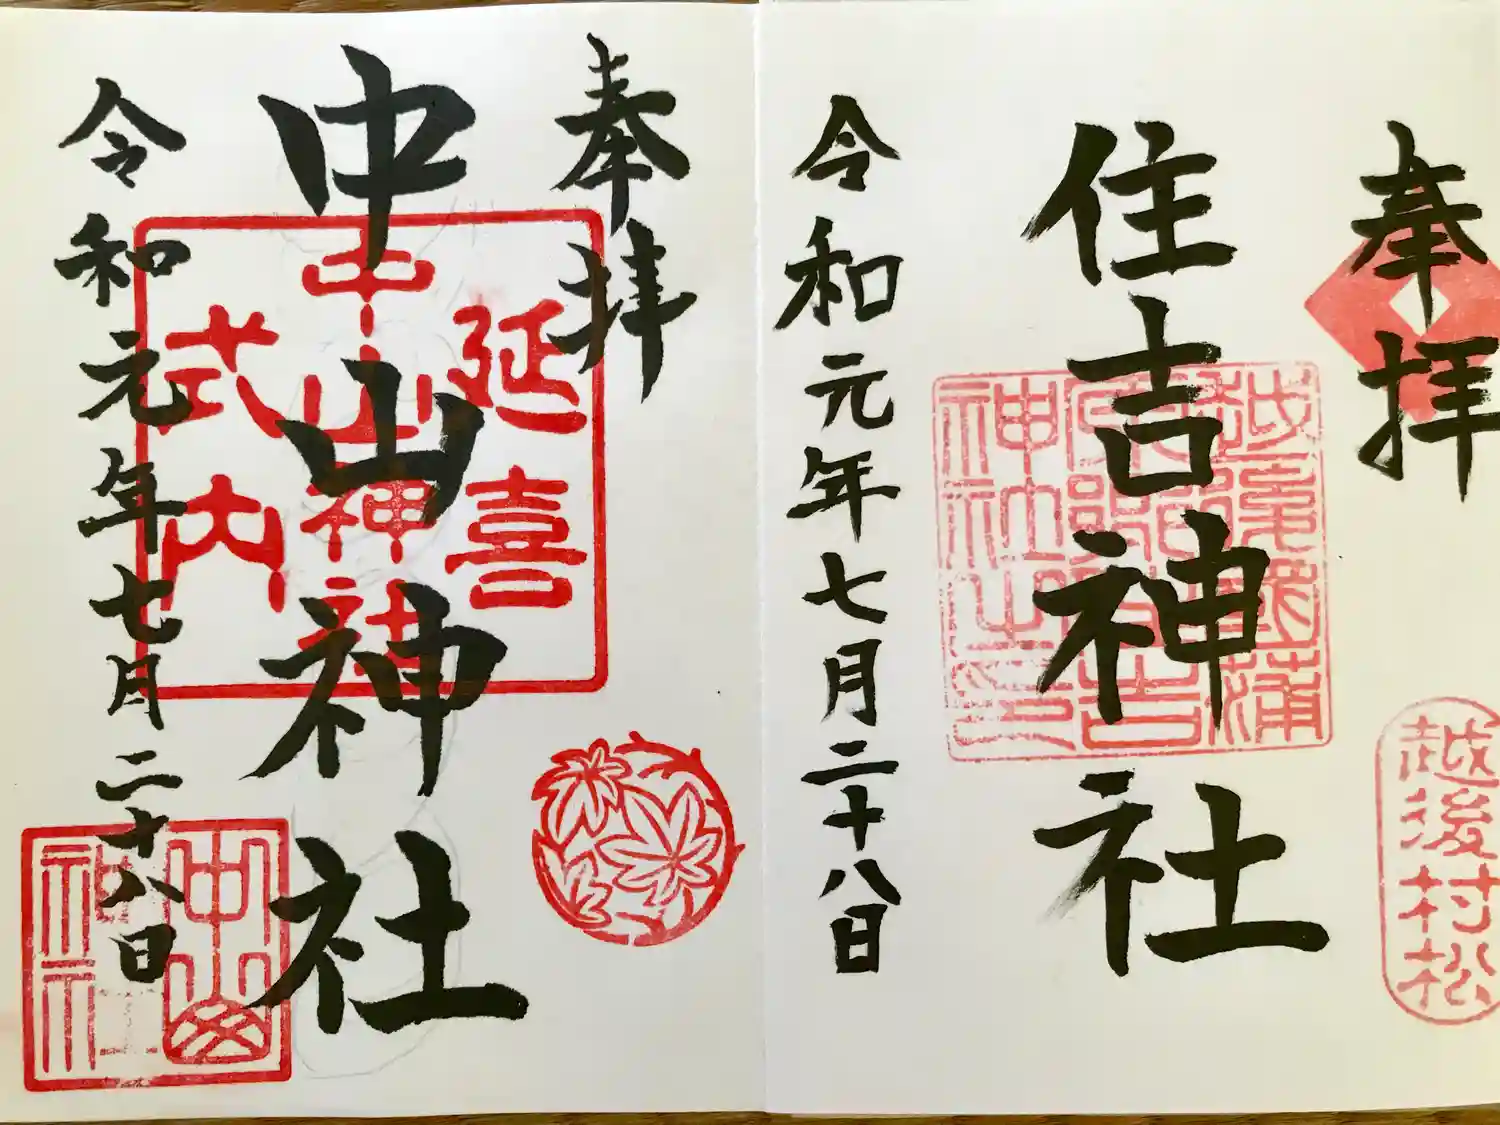 奉拝
住吉神社
令和元年七月二十八日
越後村松
奉拝
中山神社
令和元年七月二十八日
延喜
式内
中山神社
中山
神社